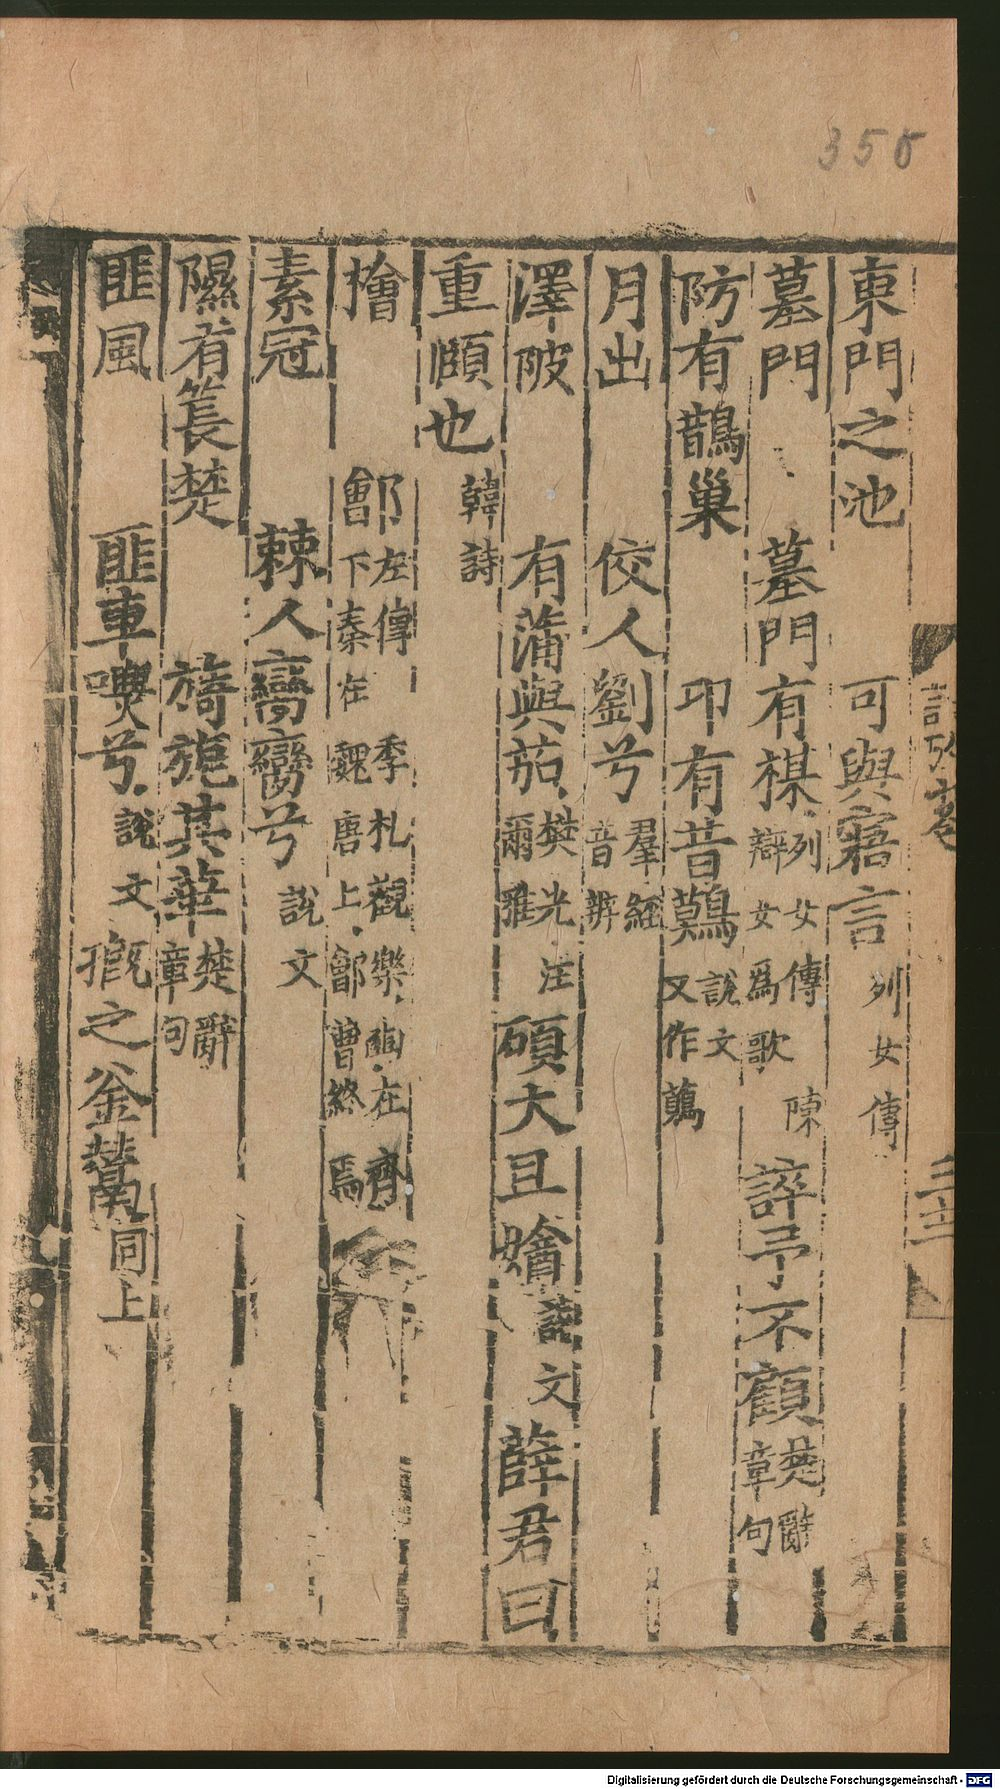 355
東門之池　可與寤言列女傳
墓門　墓門有楳列女傳陳辯女爲歌　誶予不顧楚辭章句
防有鵲巢　卭有旨鷏說文又作虉
月出　佼人劉兮羣經音辨
澤陂　有蒲與茄樊光注爾雅　碩大且嬒說文　薛君曰
重頤也韓詩
檜　鄶左傳季札觀樂豳在齊下秦在魏唐上鄶曹終焉
素冠　棘人臠臠兮說文
隰有萇楚　旖旎其華楚辭章句
匪風　匪車嘌兮說文　摡之釜鬵同上
Digitalisierung gefördert durch die Deutsche Forschungsgemeinschaft - DFG